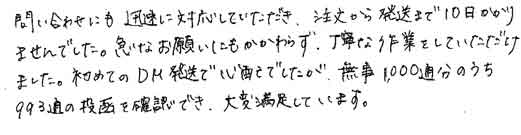 問い合わせにも迅速に対応していただき、注文から発送まで10日かかり
ませんでした。急なお願いにもかかわらず、丁寧な作業をしていただけ
ました。初めてのDM発送で心配でしたが、無事1,000通分のうち
993通の投函を確認でき、大変満足しています。